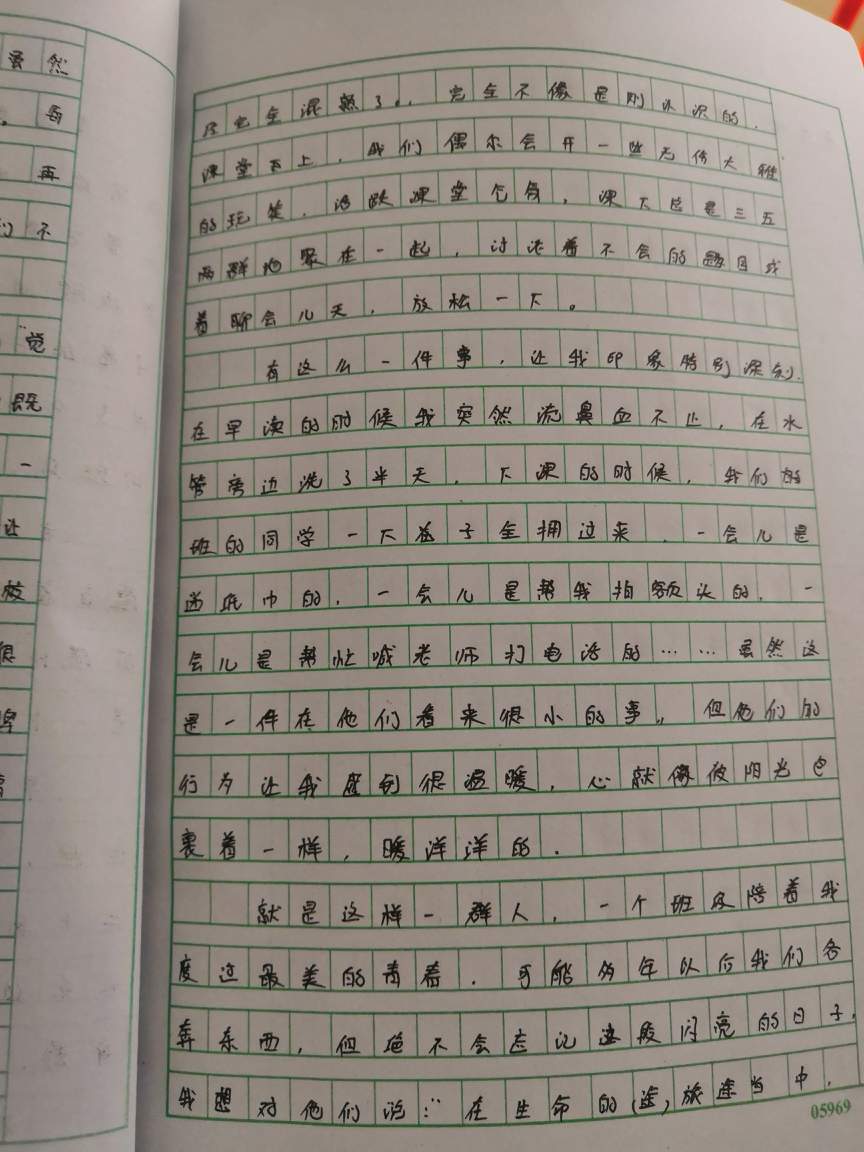 虽然
。每
再
们不
觉
既
一
让
校
很
已全混熟了。完全不像是刚认识的.
课堂上，我们偶尔会开一些无伤大雅
的玩笑，活跃课堂气氛，课下总是三五
两群地聚在一起，讨论着不会的题目或
着聊会儿天，放松一下。
有这么一件事，让我印象特别深刻.
在早读的时候我突然流鼻血不止，在水
管旁边洗了半天，下课的时候，我们的
班的同学一下子全拥过来，一会儿是
递纸巾的，一会儿是帮我拍额头的，一
会儿是帮忙喊老师打电话的……虽然这
是一件在他们看来很小的事，但他们的
行为让我感到很温暖，心就像被阳光包
裹着一样，暖洋洋的.
就是这样一群人，一个班级陪着我
度过最美的青春.可能多年以后我们各
奔东西，但绝不会忘记这段闪亮的日子，
我想对他们说：“在生命的(途)旅途当中，
05969